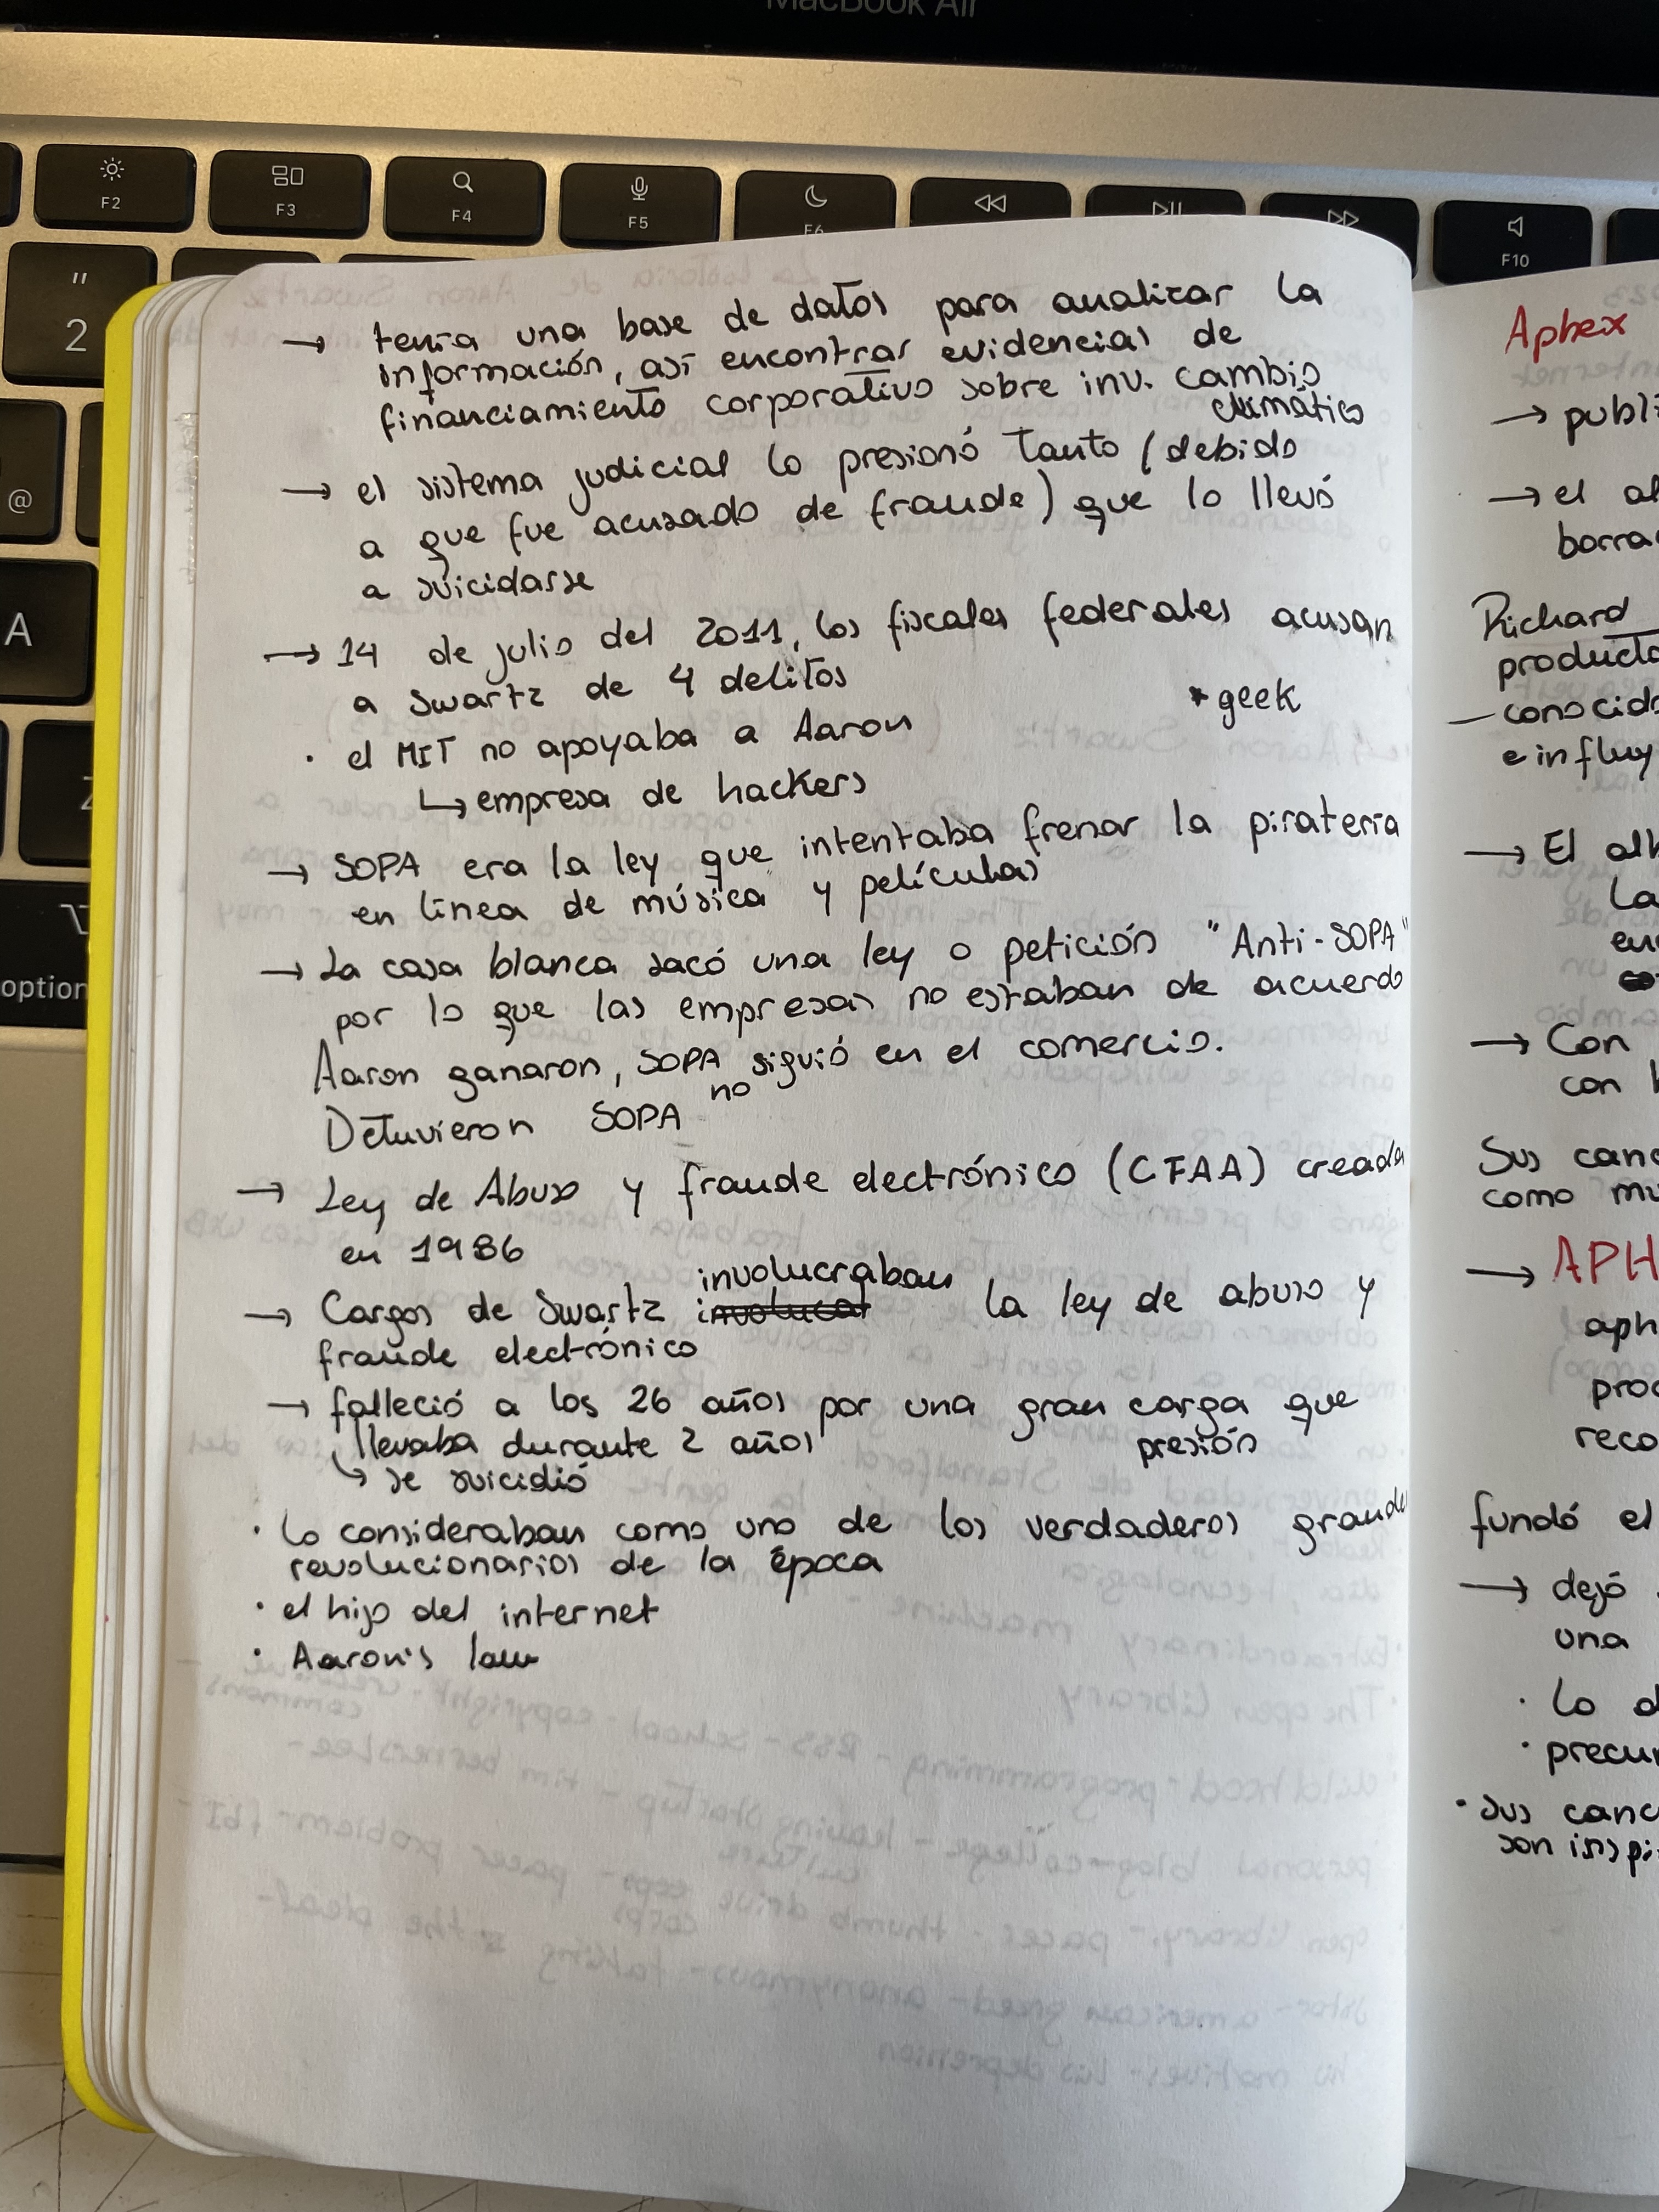 MacBook Air
F2
F3
F4
F5
F6
F10
"
2
@
A
Z
option
→ tenía una base de datos para analizar la
información, así encontrar evidencias de
financiamiento corporativo sobre inv. cambio
climático
→ el sistema judicial lo presionó tanto (debido
a que fue acusado de fraude) que lo llevó
a suicidarse
→ 14 de julio del 2011, los fiscales federales acusan
a Swartz de 4 delitos
* geek
· el MIT no apoyaba a Aaron
↳ empresa de hackers
→ SOPA era la ley que intentaba frenar la piratería
en línea de música y películas
→ La casa blanca sacó una ley o petición "Anti-SOPA"
por lo que las empresas no estaban de acuerdo
Aaron ganaron, SOPA no siguió en el comercio.
Detuvieron SOPA
→ Ley de Abuso y fraude electrónico (CFAA) creada
en 1986
→ Cargos de Swartz involucraban la ley de abuso y
fraude electrónico
→ falleció a los 26 años por una gran carga que
llevaba durante 2 años presión
↳ se suicidió
· lo consideraban como uno de los verdaderos grandes
revolucionarios de la época
· el hijo del internet
· Aaron's law
Aphex
→ publi
→ el al
borra
Richard
producto
— conocido
e influy
→ El alb
La
en
→ Con
con
Sus canc
como mú
→ APH
aph
proc
reco
fundó el
→ dejó
una
· lo d
· precur
· sus canc
son inspi